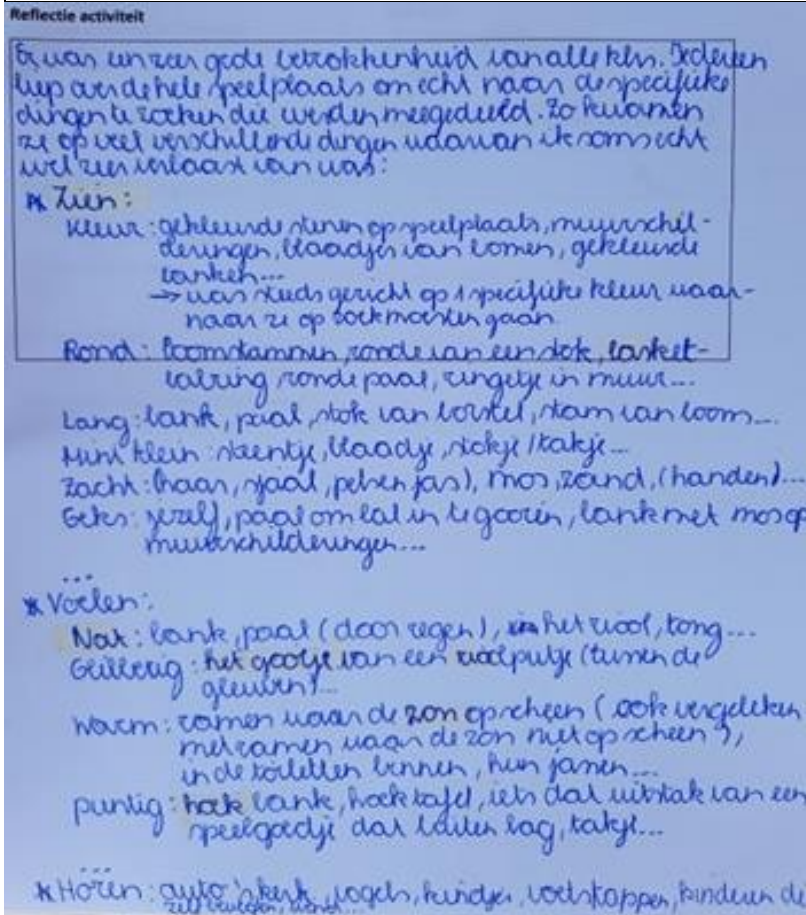 Reflectie activiteit
Er was een zeer goede betrokkenheid van alle kls. Iedereen
liep over de hele speelplaats om echt naar de specifieke
dingen te zoeken die werden meegedeeld. Zo kwamen
ze op veel verschillende dingen waarvan ik soms echt
wel zeer verbaasd van was:
* Zien:
Kleur: gekleurde stenen op speelplaats, muurschil-
deringen, blaadjes van bomen, gekleurde
banken...
→ was steeds gericht op 1 specifieke kleur waar-
naar ze op zoek moesten gaan
Rond: boomstammen, ronde van een stok, basket-
balring, ronde paal, ringetje in muur...
Lang: bank, paal, stok van borstel, stam van boom...
Mini klein: steentje, blaadje, stokje / takje...
Zacht: (haar, sjaal, pelsen jas), mos, zand, (handen)...
Geks: jezelf, paal om bal in te gooien, bank met mos op
muurschilderingen...
...
* Voelen:
Nat: bank, paal (door regen), het riool, tong...
het gootje van een rioolputje (tussen de
gleuven)...
Warm: ramen waar de zon op scheen (ook vergeleken
met ramen waar de zon niet op scheen),
in de toiletten binnen, hun jassen...
puntig: hoek bank, hoek tafel, iets dat uitstak van een
speelgoedje dat buiten lag, takje...
...
* Horen: auto's, kerk, vogels, kindje, voetstappen, kinderen